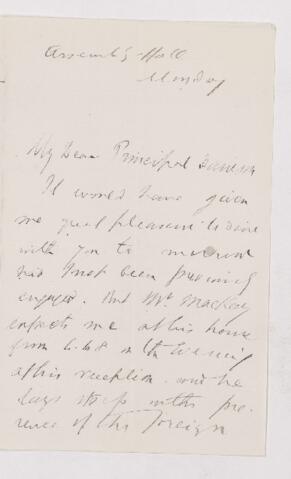 Assembly Hall
Monday
My Dear Principal Dawson
It would have given
me great pleasure to dine
with you to morrow
had I not been previously
engaged. But Mr. Mackay
expects me at his house
from 6 to 8 in the Evening
at his reception. and he
lays stress on the pre-
sence of the Foreign